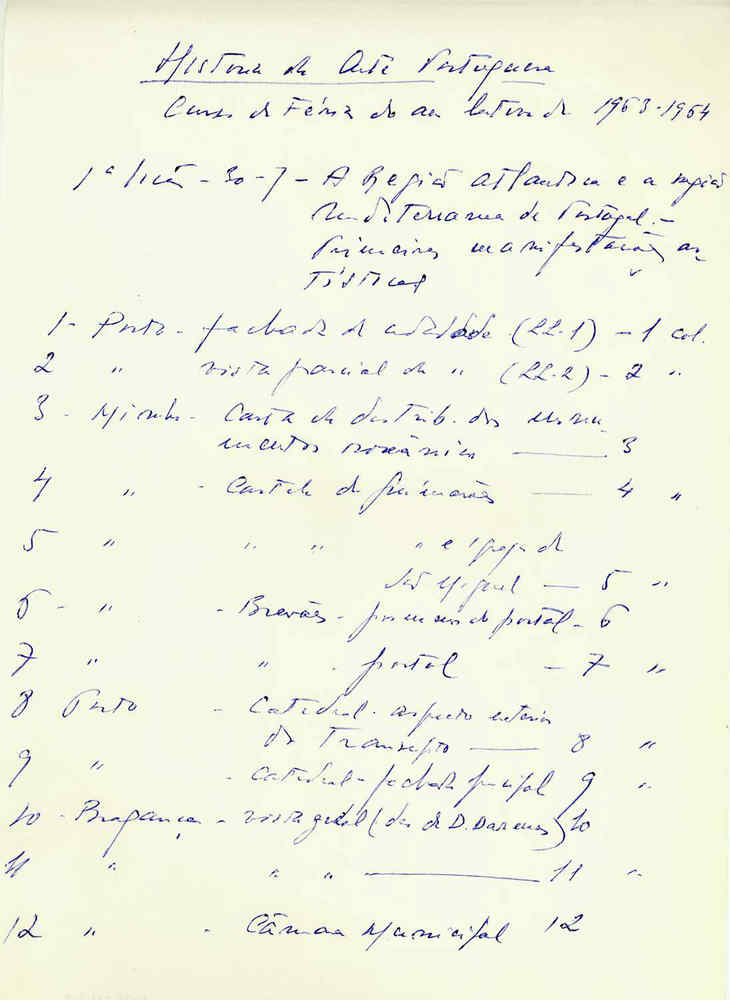 Historia da Arte Portuguesa
Curso de Férias do ano lectivo de 1963-1964
1ª lição - 30-7 - A Região atlantica e a região
mediterranea de Portugal. -
Primeiras manifestações ar-
tísticas
1 - Porto - fachada da cidade (22.1) - 1 col.
2 " vista parcial da " (22.2) - 2 "
3 - Minho - Carta de distrib. dos monu-
mentos românicos — 3
4 " - Castelo de Guimarães — 4 "
5 " " " " e igreja de
São Miguel — 5 "
6 - " - Bravães - pormenor do portal - 6
7 " " - portal - 7 "
8 Porto - Catedral - aspecto exterior
do Transepto — 8 "
9 " - Catedral - fachada principal 9 "
10 - Bragança - vista geral ( de D. ) 10
11 " " " — 11 "
12 " - Câmara Municipal 12